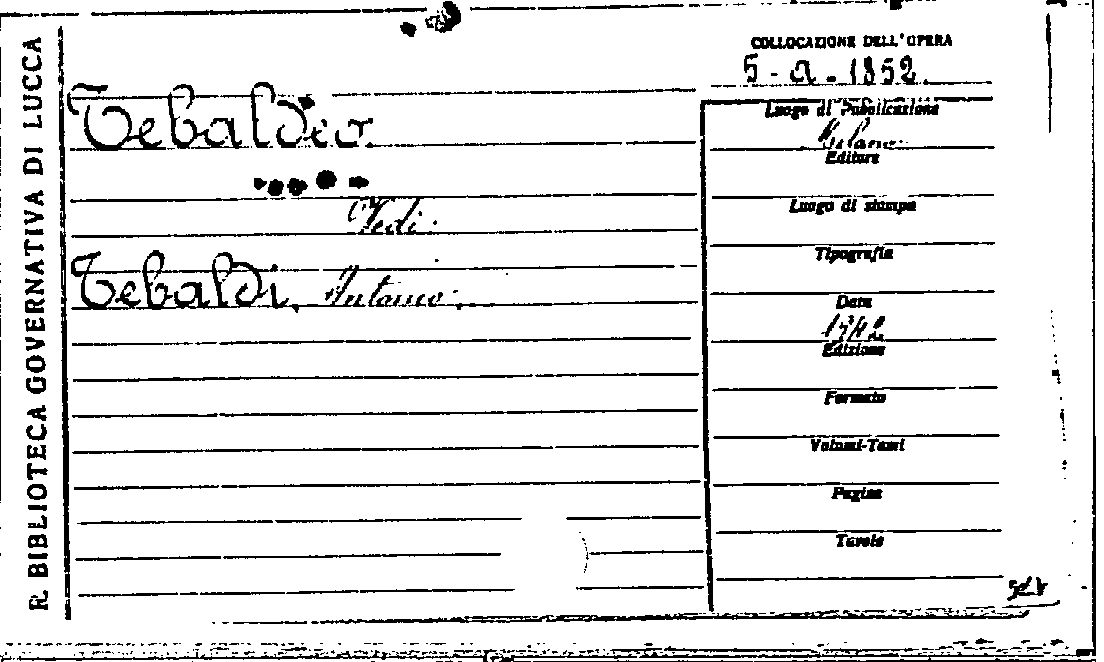 R. BIBLIOTECA GOVERNATIVA DI LUCCA
COLLOCAZIONE DELL'OPERA
5-a-1352.
Tebaldeo.
Luogo di Pubblicazione
Milano
Editore
Vedi:
Luogo di stampa
Tebaldi, Antonio.
Tipografia
Data
Edizione
Formato
Volumi-Tomi
Pagine
Tavole